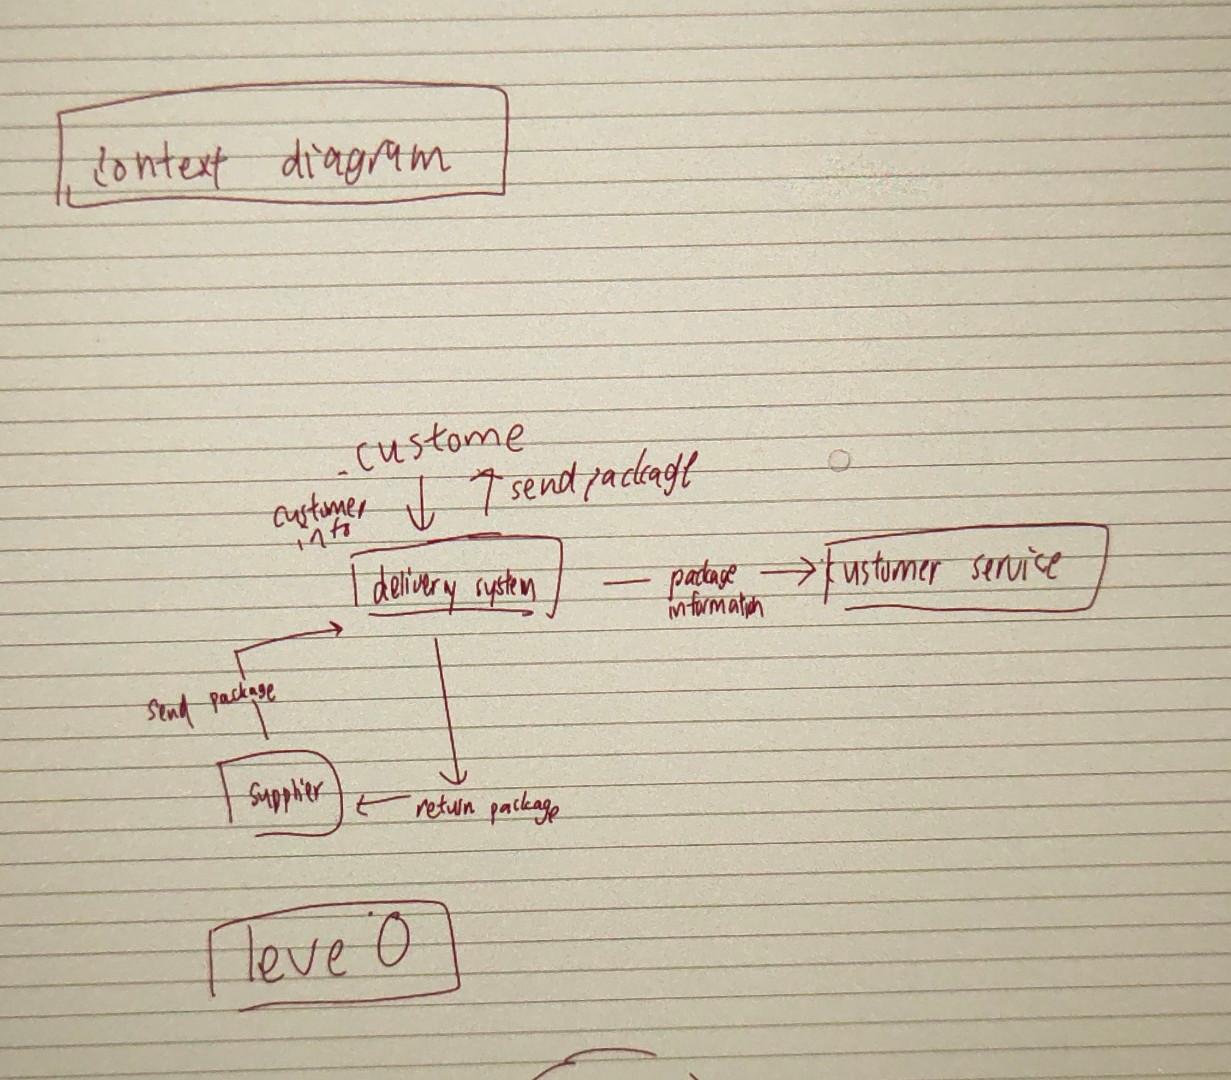 context diagram
custome
send package
customer
info
delivery system
package
information
customer service
send package
supplier
return package
leve 0